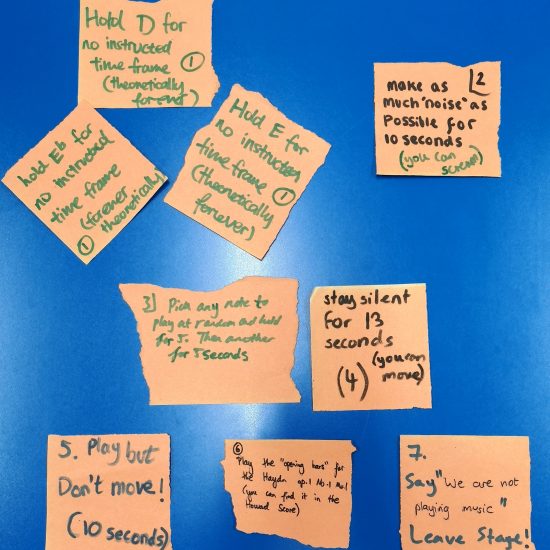 Hold D for
no instructed
time frame ①
(theoretically
forever)
hold Eb for
no instructed
time frame
(forever
theoretically)
①
Hold E for
no instruction
time frame
(theoretically ①
forever)
2
make as
much "noise" as
possible for
10 seconds
(you can
scream)
3] Pick any note to
play at random and hold
for 5. Then another
for 5 seconds
stay silent
for 13
seconds
(you can
(4) move)
5. Play but
Don't move!
(10 seconds)
⑥
Play the "opening bars" for
the Haydn op.1 No.1 Mv.1
(you can find it in the
Howard Score)
7.
Say "We are not
playing music"
Leave Stage!